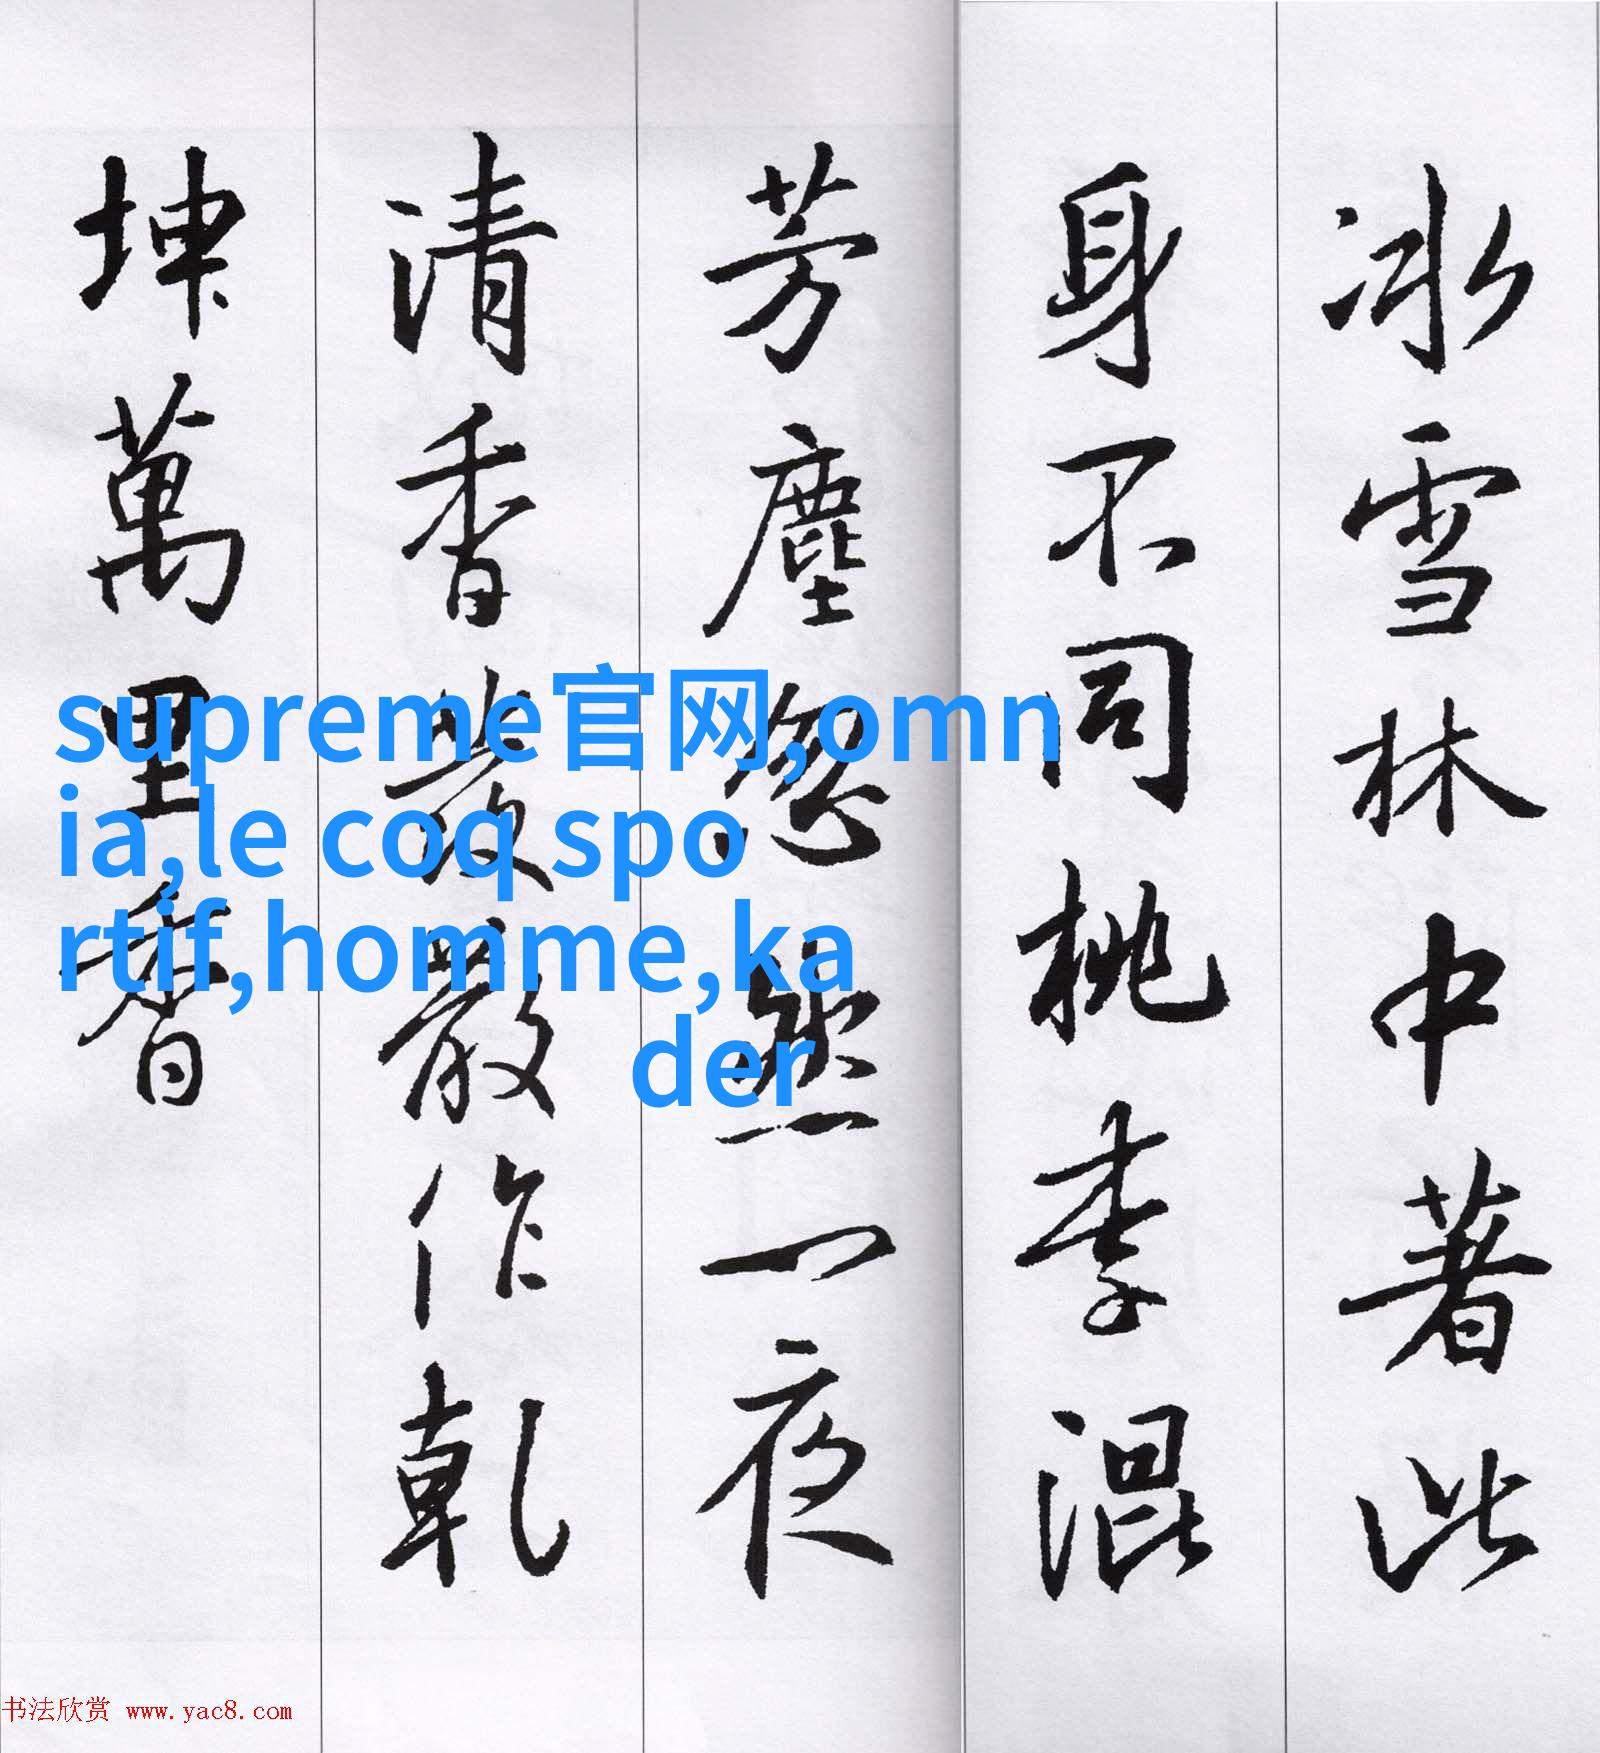 冰雪林中著此
身不同桃李混
芳塵忽然一夜
清香發散作乾
坤萬里香
supreme官网,omn
ia,le coq spo
rtif,homme,ka
der
书法欣赏 www.yac8.com